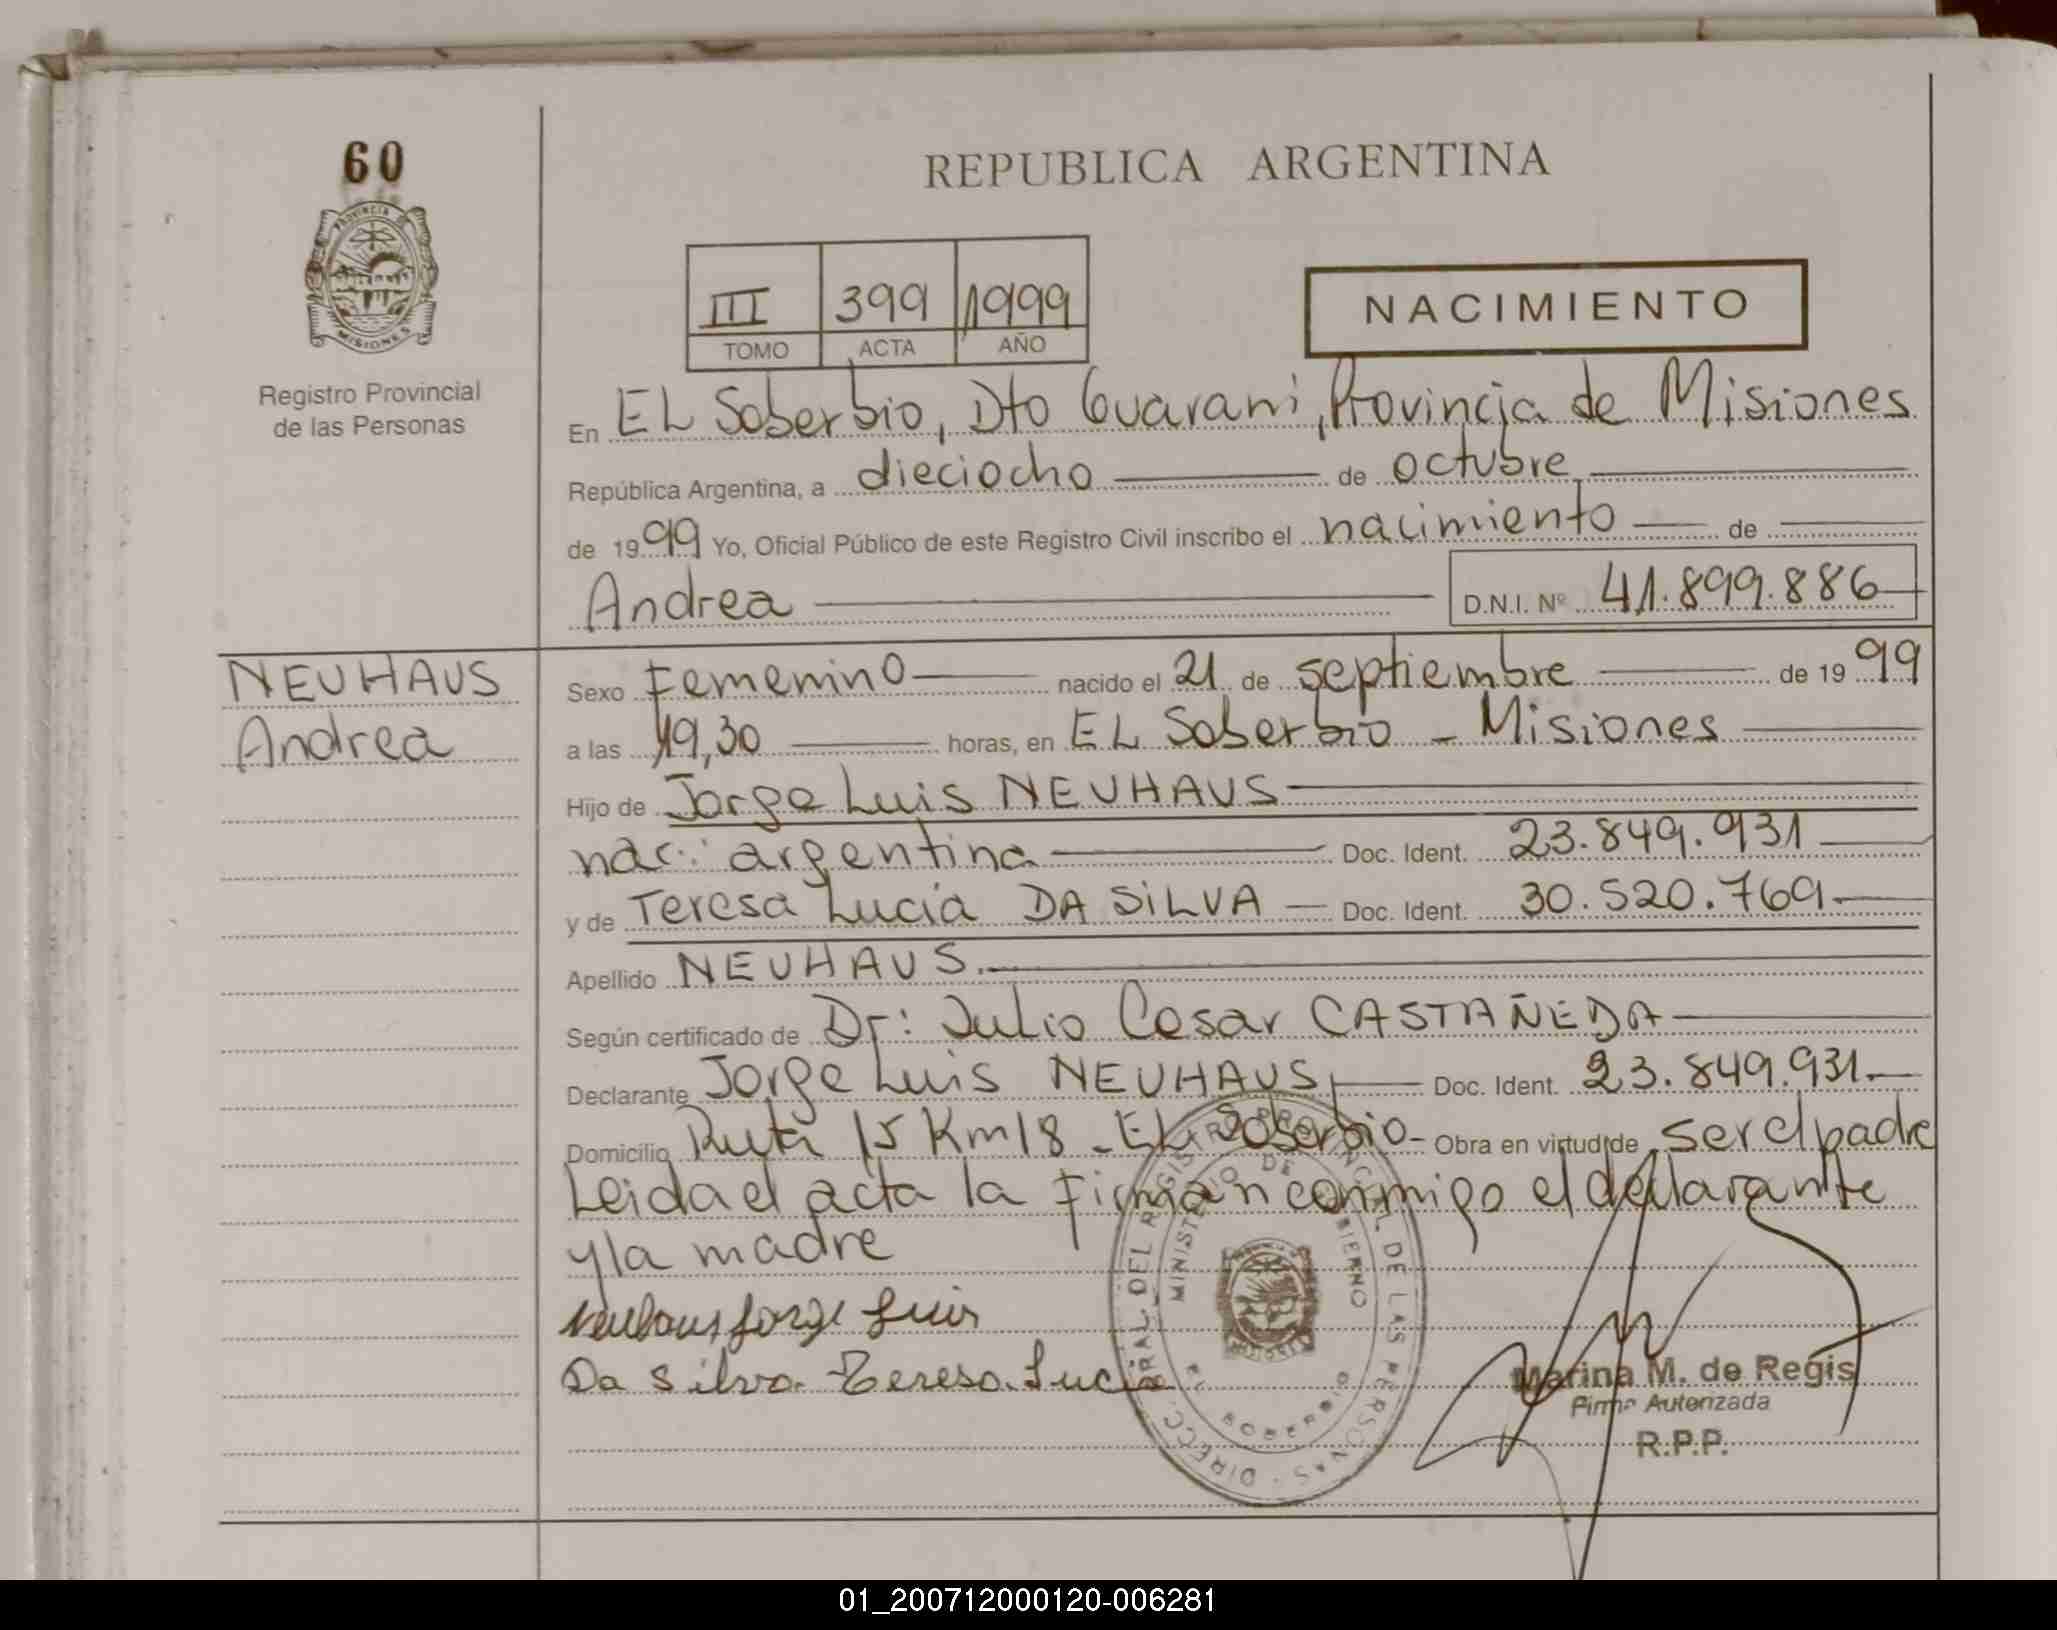 60
PROVINCIA
MISIONES
Registro Provincial
de las Personas
REPUBLICA ARGENTINA
III 399 1999
TOMO ACTA AÑO
NACIMIENTO
En EL Soberbio, Dto Guarani, Provincia de Misiones
República Argentina, a dieciocho de octubre
de 1999 Yo, Oficial Público de este Registro Civil inscribo el nacimiento de
Andrea D.N.I. Nº 41.899.886
NEUHAUS
Andrea
Sexo Femenino nacido el 21 de septiembre de 1999
a las 19,30 horas, en EL Soberbio - Misiones
Hijo de Jorge Luis NEUHAUS
nac: argentina Doc. Ident. 23.849.931
y de Teresa Lucia DA SILVA Doc. Ident. 30.520.769
Apellido NEUHAUS
Según certificado de Dr: Julio Cesar CASTAÑEDA
Declarante Jorge Luis NEUHAUS Doc. Ident. 23.849.931
Domicilio Ruta 15 Km 18 - EL Soberbio - Obra en virtud de ser el padre
Leida el acta la firman conmigo el declarante
y la madre
Neuhaus Jorge Luis
Da Silva Teresa Lucia
DIRECC. GRAL. DEL REGISTRO PROVINCIAL DE LAS PERSONAS
MINISTERIO DE GOBIERNO
EL SOBERBIO
Marina M. de Regis
Firma Autorizada
R.P.P.
01_200712000120-006281